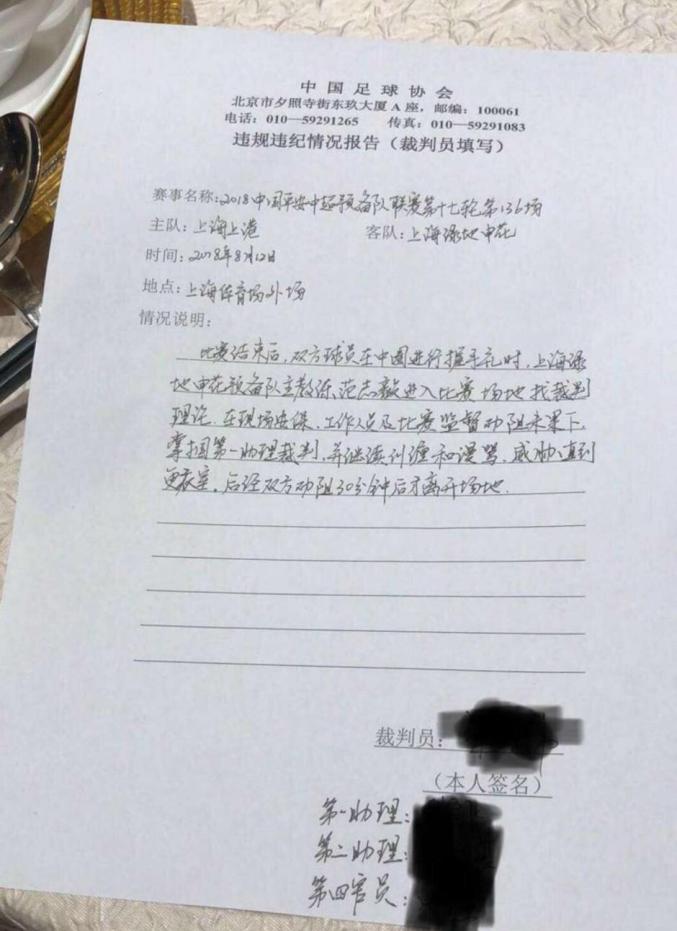 中国足球协会
北京市夕照寺街东玖大厦A座，邮编：100061
电话：010—59291265 传真：010—59291083
违规违纪情况报告（裁判员填写）
赛事名称：2018中国平安中超预备队联赛第十七轮第136场
主队：上海上港 客队：上海绿地申花
时间：2018年8月12日
地点：上海体育场外场
情况说明：
比赛结束后，双方球员在中圈进行握手礼时，上海绿
地申花预备队主教练范志毅进入比赛场地找裁判
理论．在现场安保、工作人员及比赛监督劝阻未果下，
掌掴第一助理裁判，并继续纠缠和谩骂，威胁，直到
更衣室，后经双方劝阻30分钟后才离开场地．
裁判员：
（本人签名）
第一助理：
第二助理：
第四官员：